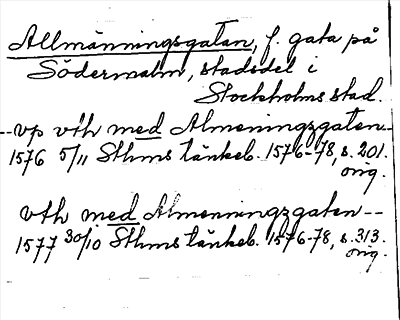 Allmänningsgatan, f. gata på
Södermalm, stadsdel i
Stockholms stad.
--vp vth med Almeningzgaten--
1576 5/11 Sthms tänkeb. 1576-78, s. 201.
orig.
vth med Almenningzgaten--
1577 30/10 Sthms tänkeb. 1576-78, s. 313.
orig.